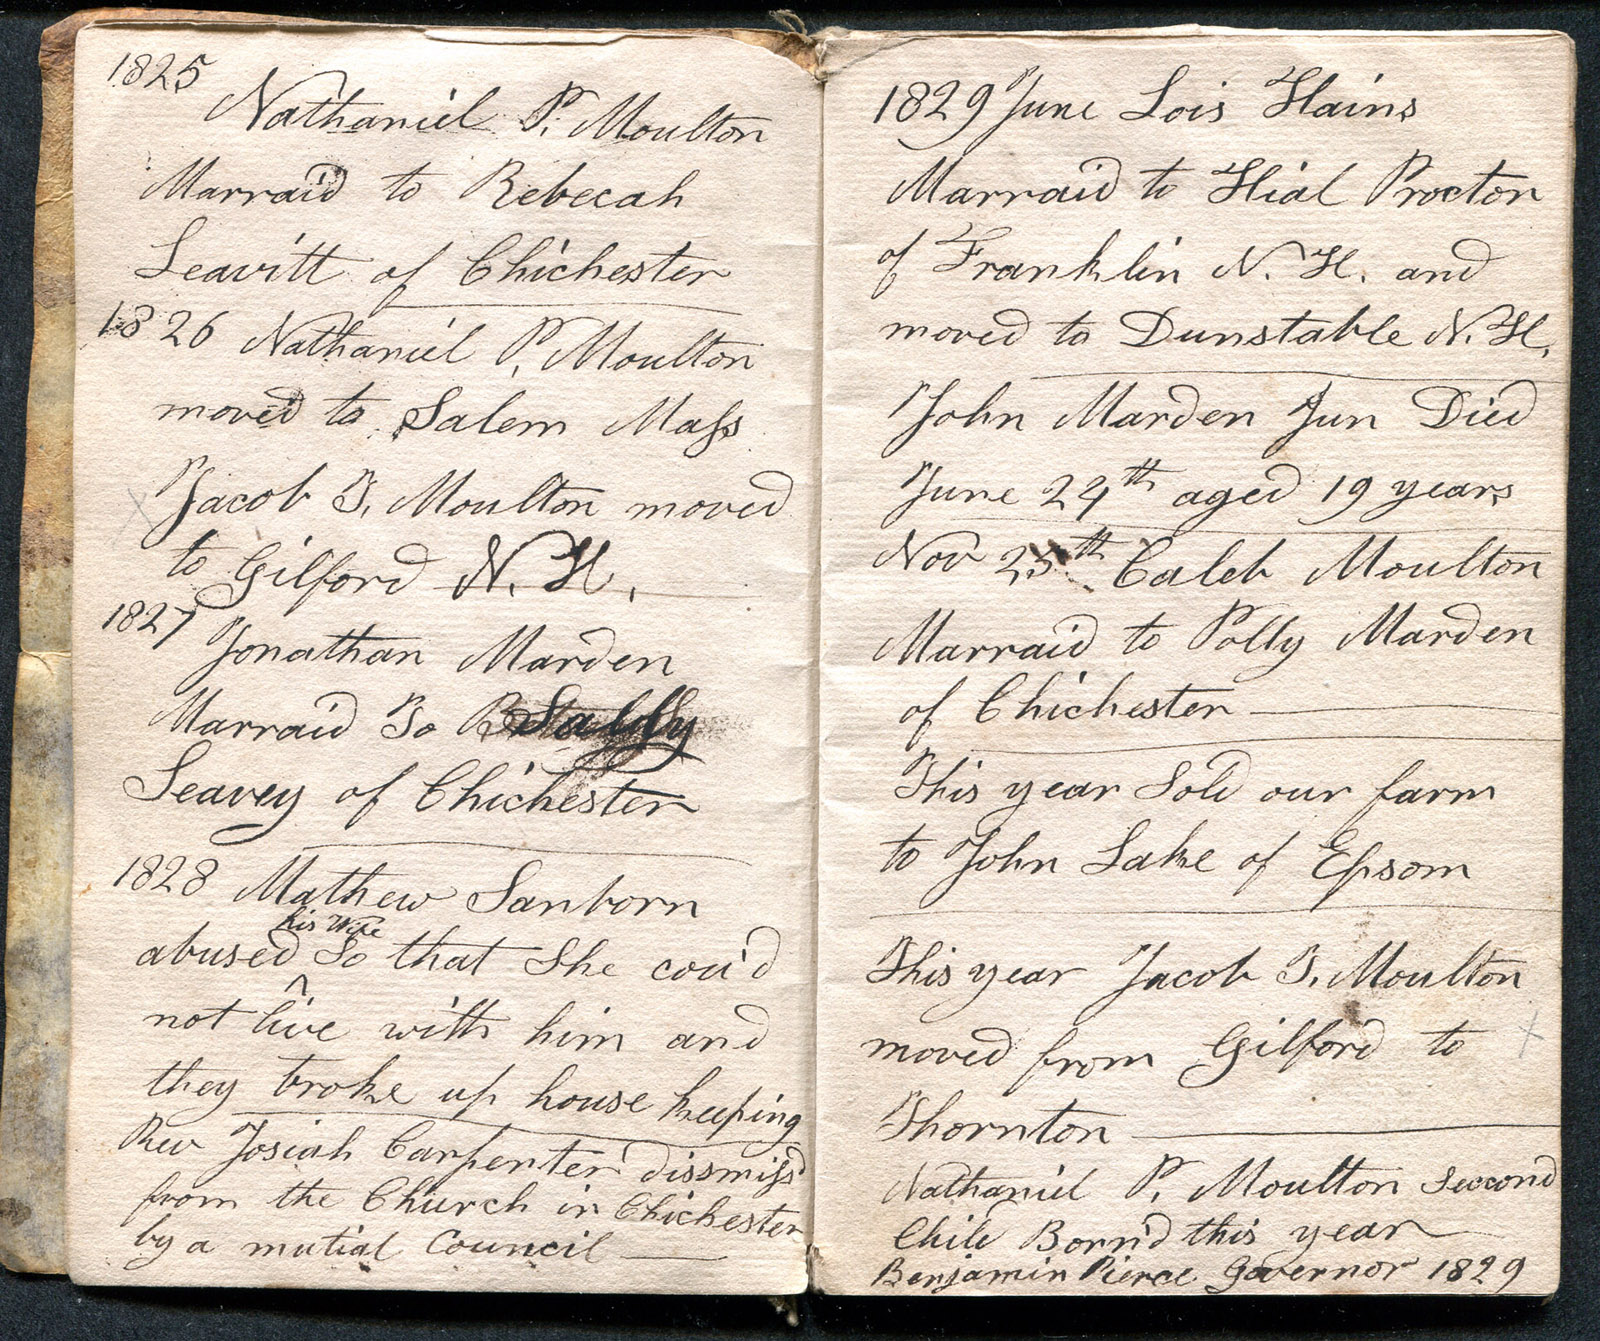 1825
Nathaniel P. Moulton
Marraid to Rebecah
Leavitt of Chichester
1826 Nathaniel P. Moulton
moved to Salem Mass
Jacob T. Moulton moved
to Gilford N. H.
1827
Jonathan Marden
Marraid To Sally
Leavey of Chichester
1828 Mathew Sanborn
his Wife
abused ^ So that She cou'd
not live with him and
they broke up house keeping
Rev Josiah Carpenter dissmiss'd
from the Church in Chichester
by a mutial Council
1829 June Lois Hains
Marraid to Hial Procton
of Franklin N. H. and
moved to Dunstable N. H.
John Marden Jun Died
June 24th aged 19 years
Nov 25th Caleb Moulton
Marraid to Polly Marden
of Chichester
This year Sold our farm
to John Lake of Epsom
This year Jacob T. Moulton
moved from Gilford to
Thornton
Nathaniel P. Moulton Second
Child Born'd this year
Benjamin Pierce Governor 1829